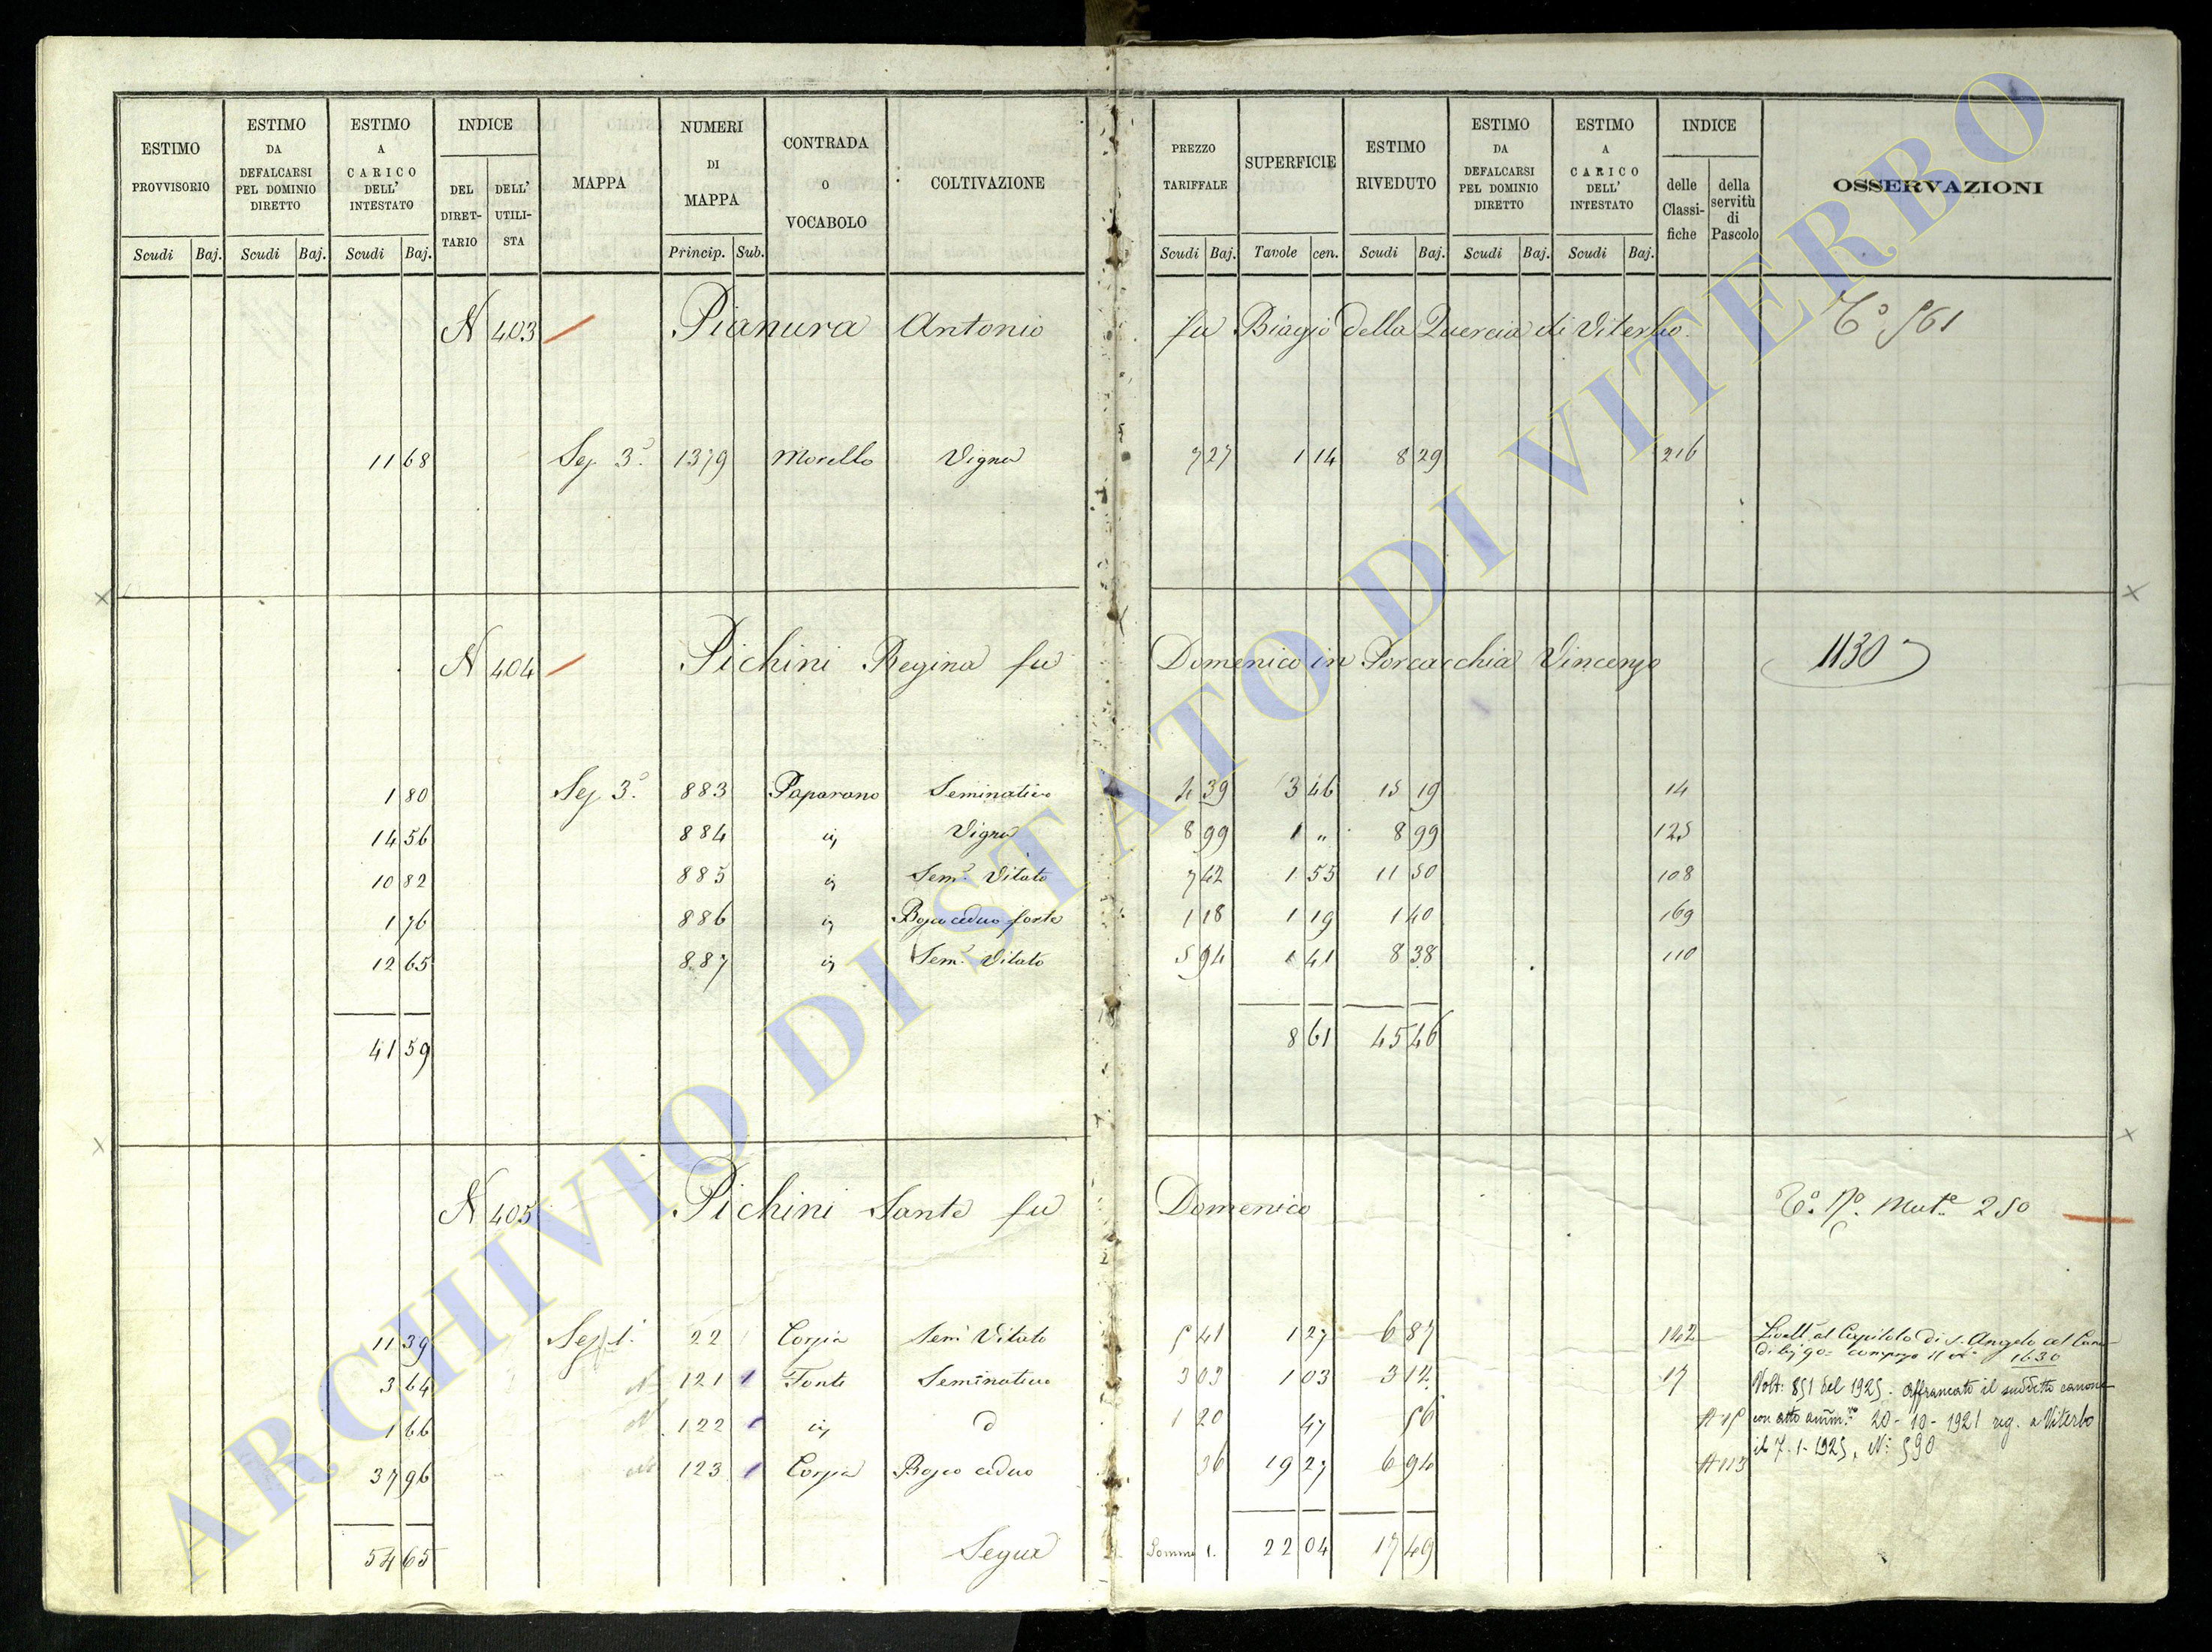 ESTIMO PROVVISORIO
Scudi Baj.
ESTIMO DA DEFALCARSI PEL DOMINIO DIRETTO
Scudi Baj.
ESTIMO A CARICO DELL' INTESTATO
Scudi Baj.
INDICE
DEL DIRET-TARIO
DELL' UTILI-STA
MAPPA
NUMERI DI MAPPA
Princip. Sub.
CONTRADA O VOCABOLO
COLTIVAZIONE
PREZZO TARIFFALE
Scudi Baj.
SUPERFICIE
Tavole cen.
ESTIMO RIVEDUTO
Scudi Baj.
ESTIMO DA DEFALCARSI PEL DOMINIO DIRETTO
Scudi Baj.
ESTIMO A CARICO DELL' INTESTATO
Scudi Baj.
INDICE
delle Classi-fiche
della servitù di Pascolo
OSSERVAZIONI
N 403 Pianura Antonio fu Biagio della Quercia di Viterbo C° 561
11 68 Sez 3ª 1379 Morello Vigna 7 27 1 14 8 29 216
N 404 Pichini Regina fu Domenico in Porcacchia Vincenzo 1130
1 80 Sez 3ª 883 Paparano Seminativo 4 39 3 46 15 19 14
14 56 884 id Vigna 8 99 1 " 8 99 125
10 82 885 id Sem° Vitato 7 42 1 55 11 50 108
1 76 886 id Bosco ceduo forte 1 18 1 19 1 40 169
12 65 887 id Sem° Vitato 5 94 1 41 8 38 110
41 59 8 61 45 46
N 405 Pichini Sante fu Domenico 250
11 39 Sez 1ª 22 Corpia Sem° Vitato 5 41 1 27 6 87 142 Livell° al Capitolo di S. Angelo
1630
3 64 121 1 Fonte Seminativo 3 03 1 03 3 12 17 Volt: 851 del 1925. Affrancato il suddetto canone
1 66 122 1 id d 1 20 47 56 con atto amm.vo 20-10-1921 reg. a Viterbo
il 7-1-1925, N: 590
37 96 123 1 Corpia Bosco ceduo 36 19 27 6 94 113
54 65 Segue Somma 1. 22 04 17 49
ARCHIVIO DI STATO DI VITERBO